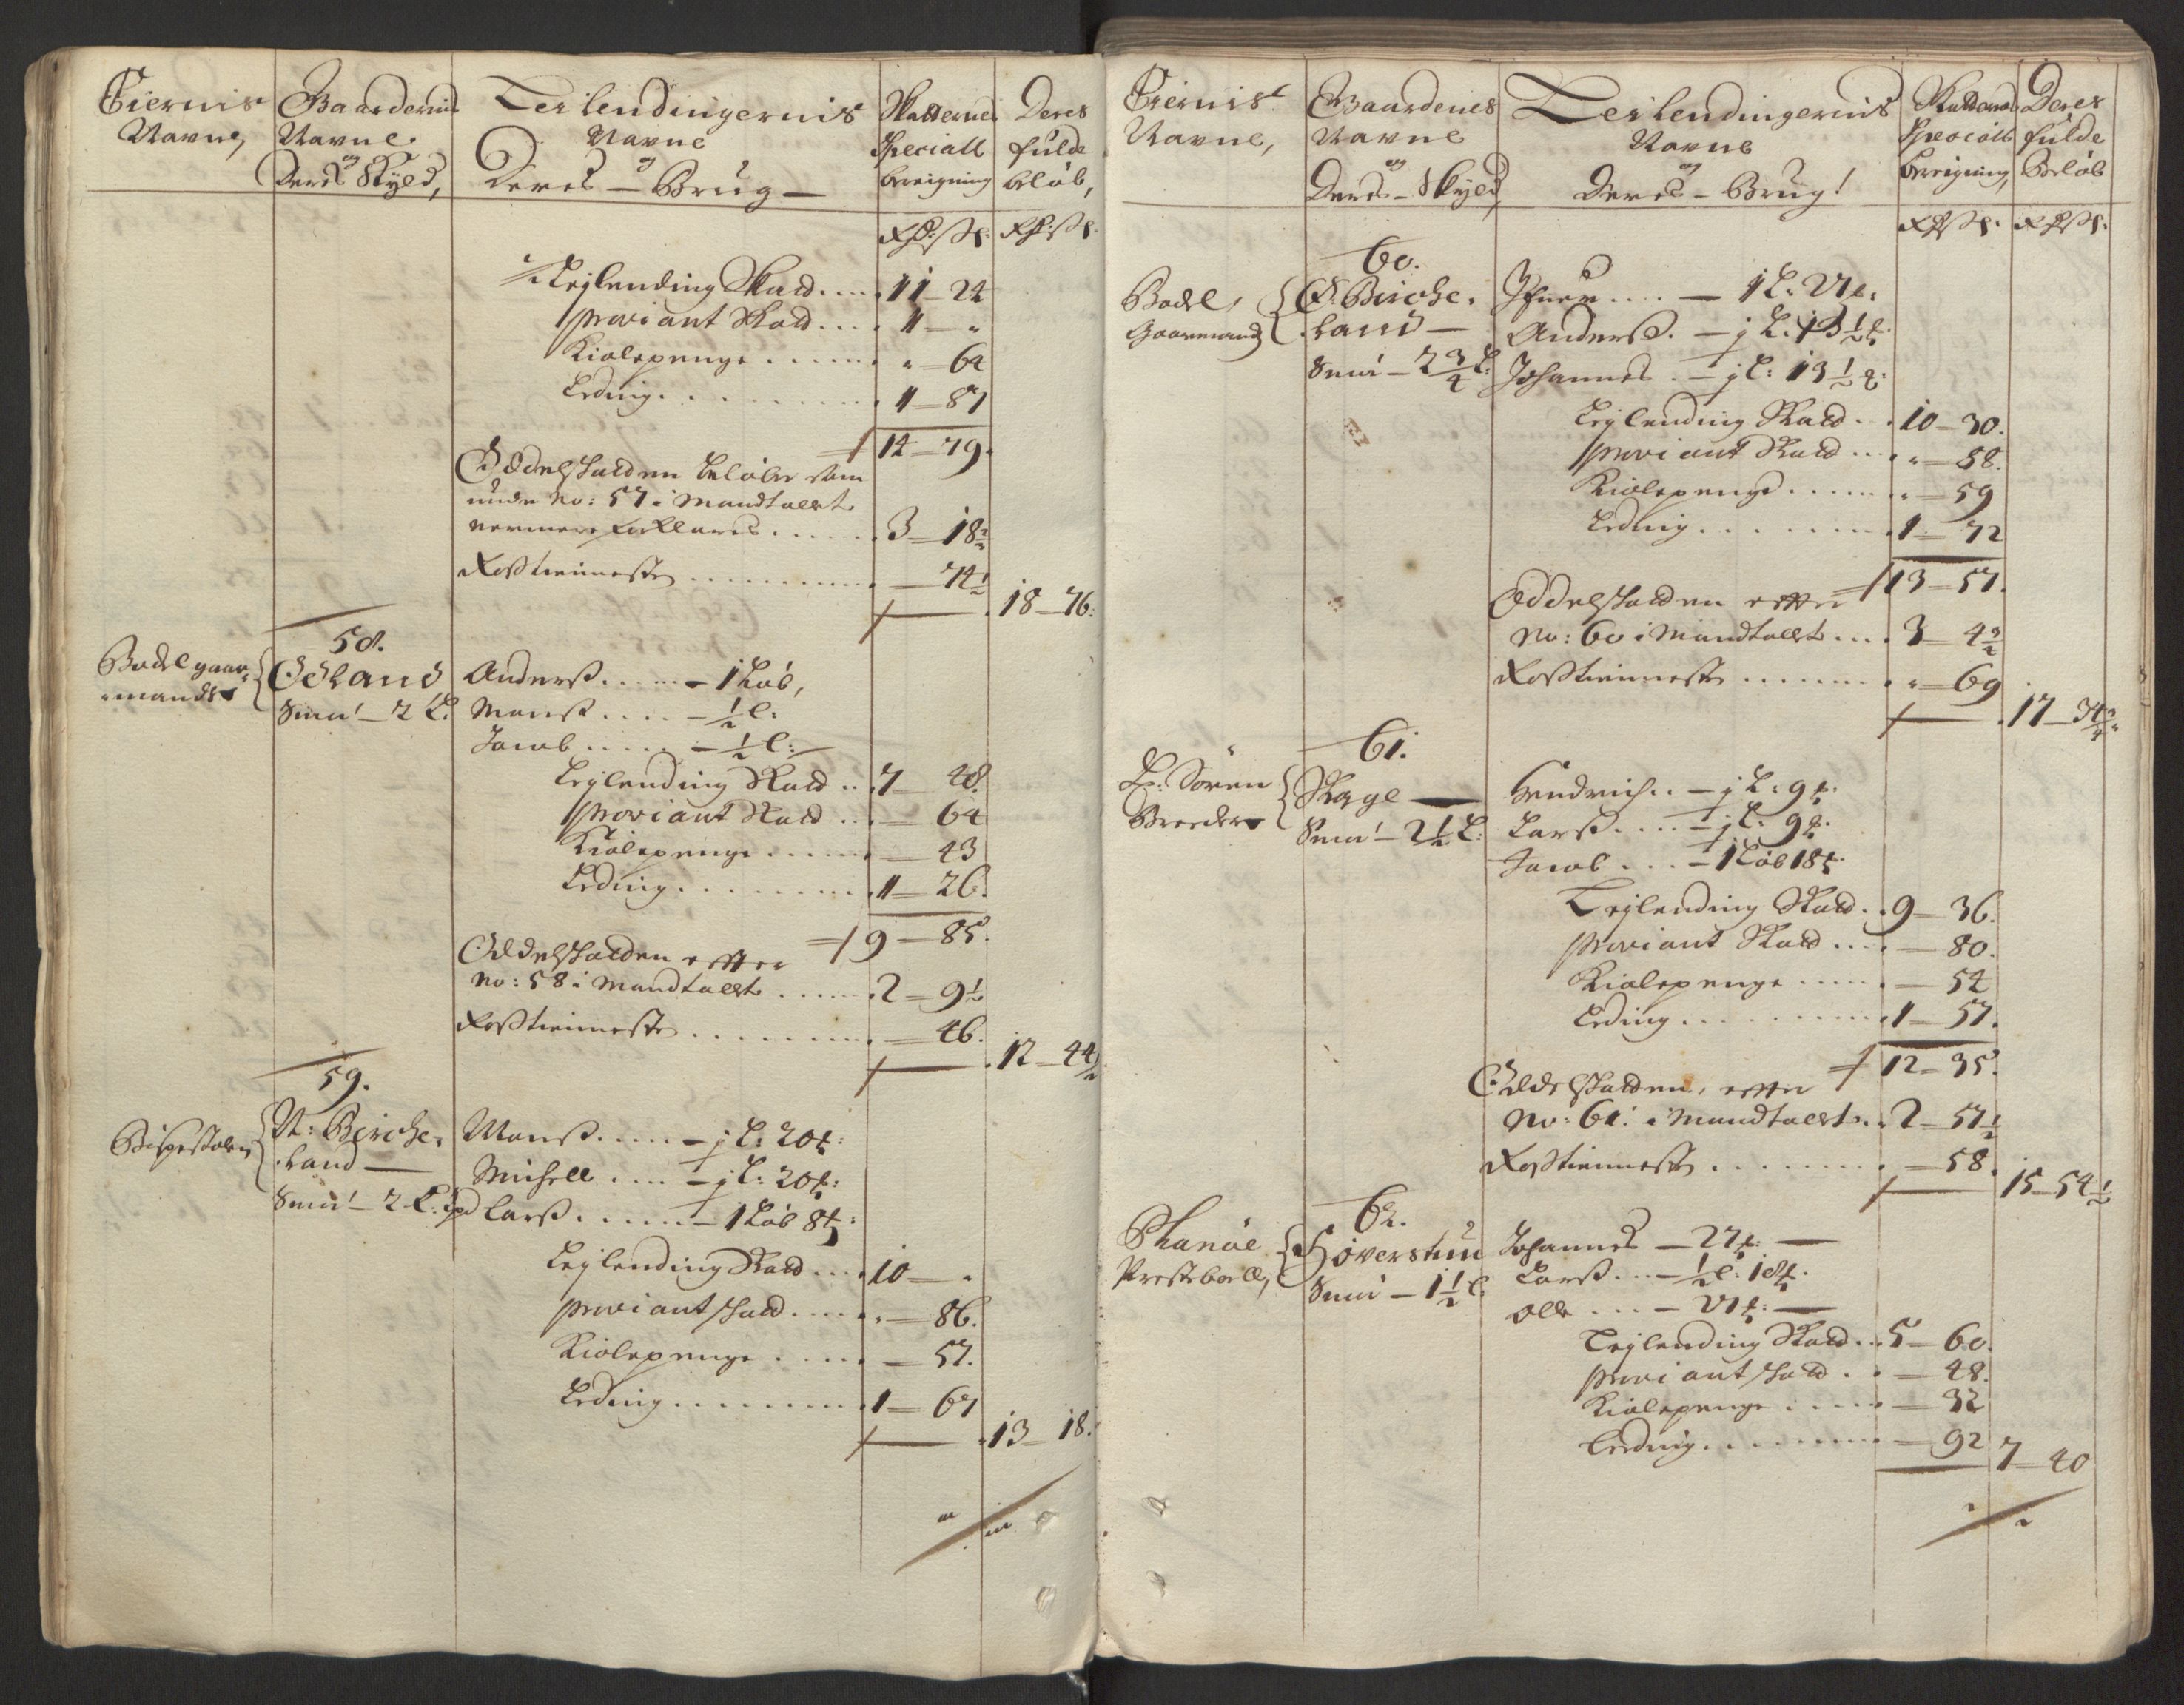 Eiernis Navne,
Gaardernis Navne og Deres Skyld,
Leilendingernis Navne og Deres — Brug —
Skatternes Speciall bereigning
Deres fulde beløb,
Rdr: ß. Rdr: ß.
Lejlending Skatt .... 11 — 24
proviant Skatt .... 1 — "
Kiolepenge ...... " — 64
Leding .......... 1 — 87
14 — 79.
Oddelskatten beløber som
under No: 57 i Mandtallet
nermere forklares ..... 3 — 18 2/2
Rosstienneste .......... — 74 1/2
18 — 76.
58.
Bodel gaar-
mandz
Odland
Smør — 2 L.
Anderß ...... — 1 Løb,
Monß .... — 1/2 l:
Jacob ..... — 1/2 l:
Lejlending Skatt .. 7 — 48.
proviant Skatt ... — 64
Kiolepenge ...... — 43
Leding ......... 1 — 26.
9 — 85.
Oddelskatten effter
No: 58 i Mandtallet ...... 2 — 9 1/2
Rosstienneste ......... — 46.
12 — 44 1/2
59.
Bispestolen
N: Birche-
land —
Smør — 2 L: 1 pd
Monß ...... — j L: 20 f:
Michell .... — j L: 20 f:
Larß ...... — 1 Løb 8 f:
Lejlending Skatt .... 10 — "
proviant skatt .... " — 86.
Kiolepenge ..... — 57.
Leding ......... 1 — 67
13 — 18.
Eiernis Navne,
Gaardenes Navne og Deres — Skyld,
Leilendingernis Navne og Deres — Brug!
Skatternes Speciall bereigning,
Deres fulde Beløb
Rdr ß. Rdr ß.
60.
Bodel,
Gaarmand
Ø. Birche-
land —
Smør — 2 3/4 L:
Ifuer .... — 1 L: 21 f:
Anderß. — j L: 13 1/2 f.
Johannes . — j L: 13 1/2 f:
Lejlending Skatt .. 10 — 30.
proviant Skatt ... " — 88.
Kiolepenge ...... " — 59
Leding ......... 1 — 72
13 — 57.
Oddelskatten effter
No: 60 i Mandtallet ... 3 — 4 3/2
Rosstienneste ....... " — 69
17 — 34 3/4
61.
Hr: Søren
Breder
Skage —
Smør — 2 1/2 L:
Hendrich .. — j L: 9 f.
Larß .... — j L: 9 f.
Jacob ... — 1 Løb 18 f.
Lejlending Skatt .. 9 — 36.
proviant Skatt .... — 80.
Kiolepenge ..... — 54
Leding ......... 1 — 57.
12 — 35.
Oddelskatten, effter
No: 61: i Mandtallet .. 2 — 57 1/2
Rosstienneste ........ — 58.
15 — 54 1/2
62.
Skanøe
Prestebolle,
Høverstuu
Smør — 1 1/2 l.
Johannes — 27 f: —
Larß ... — 1/2 l: 18 f.
Olle .... — 21 f: —
Lejlending Skatt .. 5 — 60.
proviant skatt .. — 48.
Kiolepenge ..... — 32
Leding ........ — 92
7 — 40